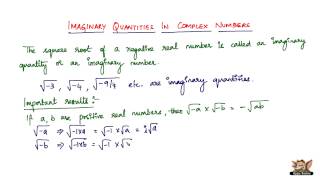 IMAGINARY QUANTITIES IN COMPLEX NUMBERS
The square root of a negative real number is called an imaginary
quantity or an imaginary number.
√-3 , √-4 , √-9/4 etc. are imaginary quantities.
Important results:-
If a, b are positive real numbers, then √-a × √-b = -√ab
√-a ⇒ √-1×a = √-1 × √a = i√a
√-b ⇒ √-1×b = √-1 × √